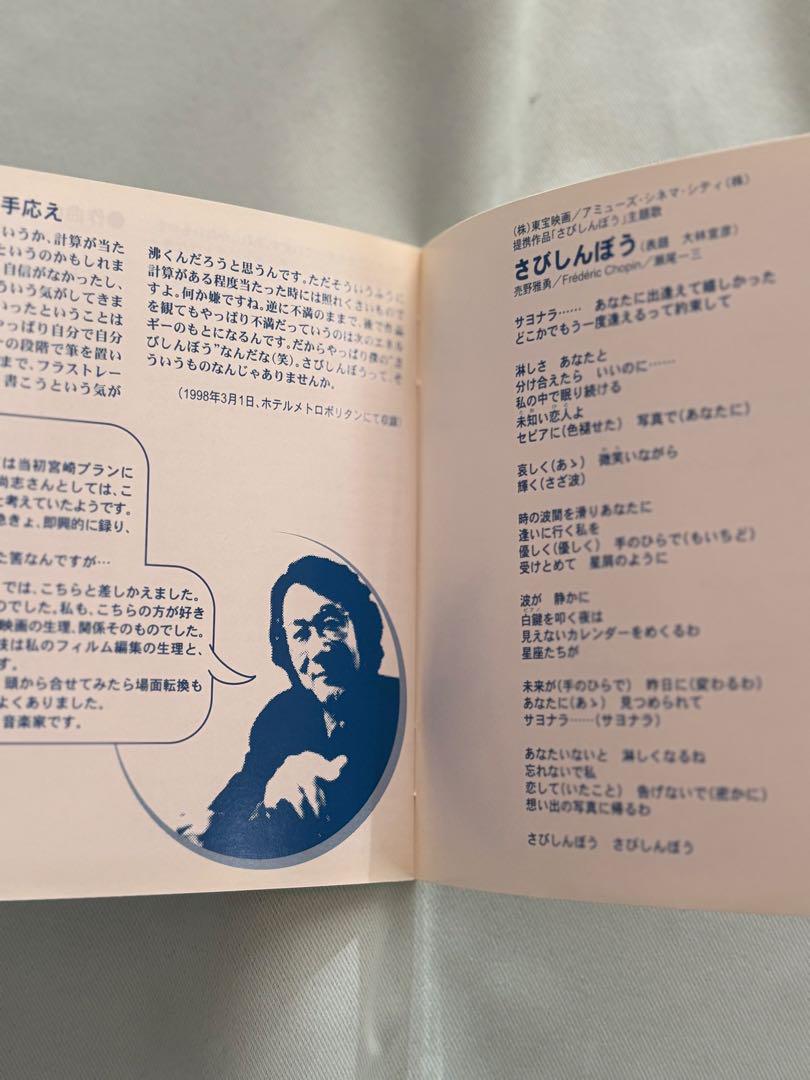 手応え
いうか、計算が当た
というのかもしれま
自信がなかったし、
ういう気がしてきま
いったということは
っぱり自分で自分
ナの段階で筆を置い
まで、フラストレー
書こうという気が
沸くんだろうと思うんです。ただそういうふうに
計算がある程度当たった時には照れくさいもので
すよ。何か嫌ですね。逆に不満のままで、後で作品
を観てもやっぱり不満だっていうのは次のエネル
ギーのもとになるんです。だからやっぱり僕の“さ
びしんぼう”なんだな(笑)。さびしんぼうって、そ
ういうものなんじゃありませんか。
(1998年3月1日、ホテルメトロポリタンにて収録)
は当初宮崎プランに
尚志さんとしては、こ
と考えていたようです。
急きょ、即興的に録り、
た筈なんですが…
では、こちらと差しかえました。
のでした。私も、こちらの方が好き
映画の生理、関係そのものでした。
は私のフィルム編集の生理と、
す。
頭から合せてみたら場面転換も
よくありました。
音楽家です。
(株)東宝映画/アミューズ・シネマ・シティ(株)
提携作品「さびしんぼう」主題歌
さびしんぼう(表題 大林宣彦)
売野雅勇/Frédéric Chopin/瀬尾一三
サヨナラ…… あなたに出逢えて嬉しかった
どこかでもう一度逢えるって約束して
淋しさ あなたと
分け合えたら いいのに……
私の中で眠り続ける
未知い恋人よ
セピアに(色褪せた) 写真で(あなたに)
哀しく(あゝ) 微笑いながら
輝く(さざ波)
時の波間を滑りあなたに
逢いに行く私を
優しく(優しく) 手のひらで(もいちど)
受けとめて 星屑のように
波が 静かに
ピアノ
白鍵を叩く夜は
見えないカレンダーをめくるわ
星座たちが
未来が(手のひらで) 昨日に(変わるわ)
あなたに(あゝ) 見つめられて
サヨナラ……(サヨナラ)
あなたいないと 淋しくなるね
忘れないで私
恋して(いたこと) 告げないで(密かに)
想い出の写真に帰るわ
さびしんぼう さびしんぼう